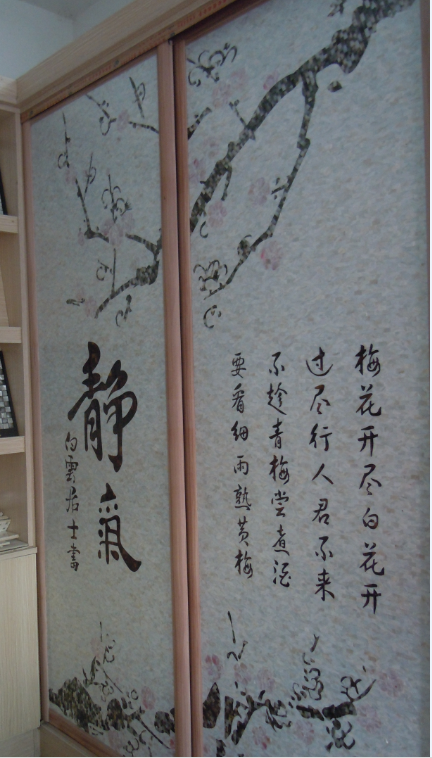 梅花开尽白花开
过尽行人君不来
不趁青梅尝煮酒
要看细雨熟黄梅
静氣
白雲居士書